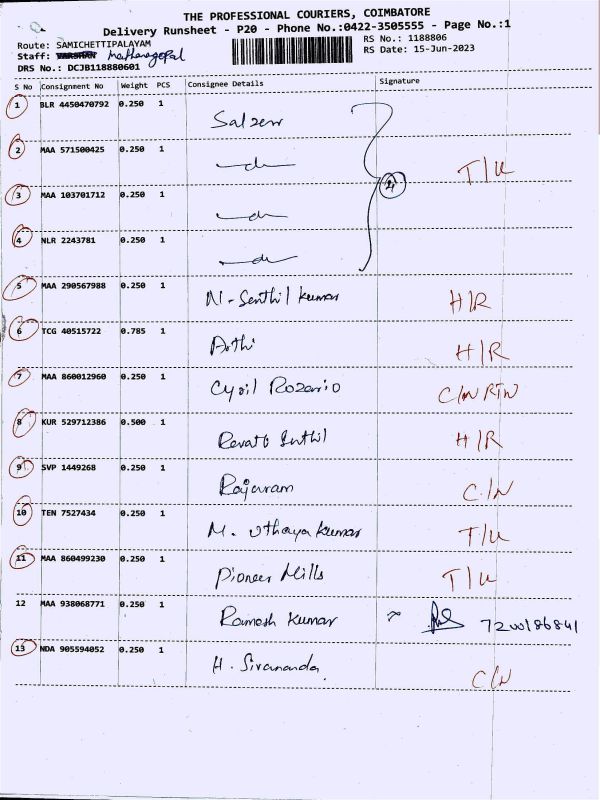 THE PROFESSIONAL COURIERS, COIMBATORE
Delivery Runsheet - P20 - Phone No.:0422-3505555 - Page No.:1
Route: SAMICHETTIPALAYAM
RS No.: 1188806
Staff: Mathanagopal
RS Date: 15-Jun-2023
DRS No.: DCJB118880601
S No Consignment No Weight PCS Consignee Details Signature
1 BLR 4450470792 0.250 1 Salzer
2 MAA 571500425 0.250 1 T/U
3 MAA 103701712 0.250 1 4
4 NLR 2243781 0.250 1
5 MAA 290567988 0.250 1 N-Senthil Kumar H/R
6 TCG 40515722 0.785 1 Arthi H/R
7 MAA 860012960 0.250 1 Cyril Rozario C/N RTN
8 KUR 529712386 0.500 1 H/R
9 SVP 1449268 0.250 1 Rajaram C/N
10 TEN 7527434 0.250 1 M. Uthaya Kumar T/U
11 MAA 860499230 0.250 1 Pioneer Mills T/U
12 MAA 938068771 0.250 1 Ramesh Kumar
13 NDA 905594052 0.250 1 H. Sivananda C/N